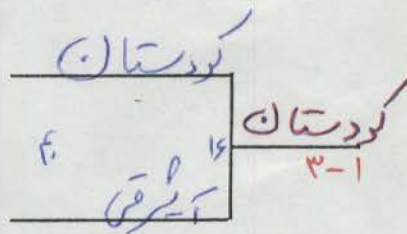 کردستان
۱۶ کردستان
۳-۱
آ.شرقی